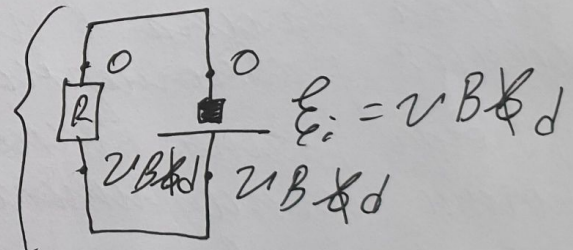 0 0
R
ℰi = vBd
vBd vBd